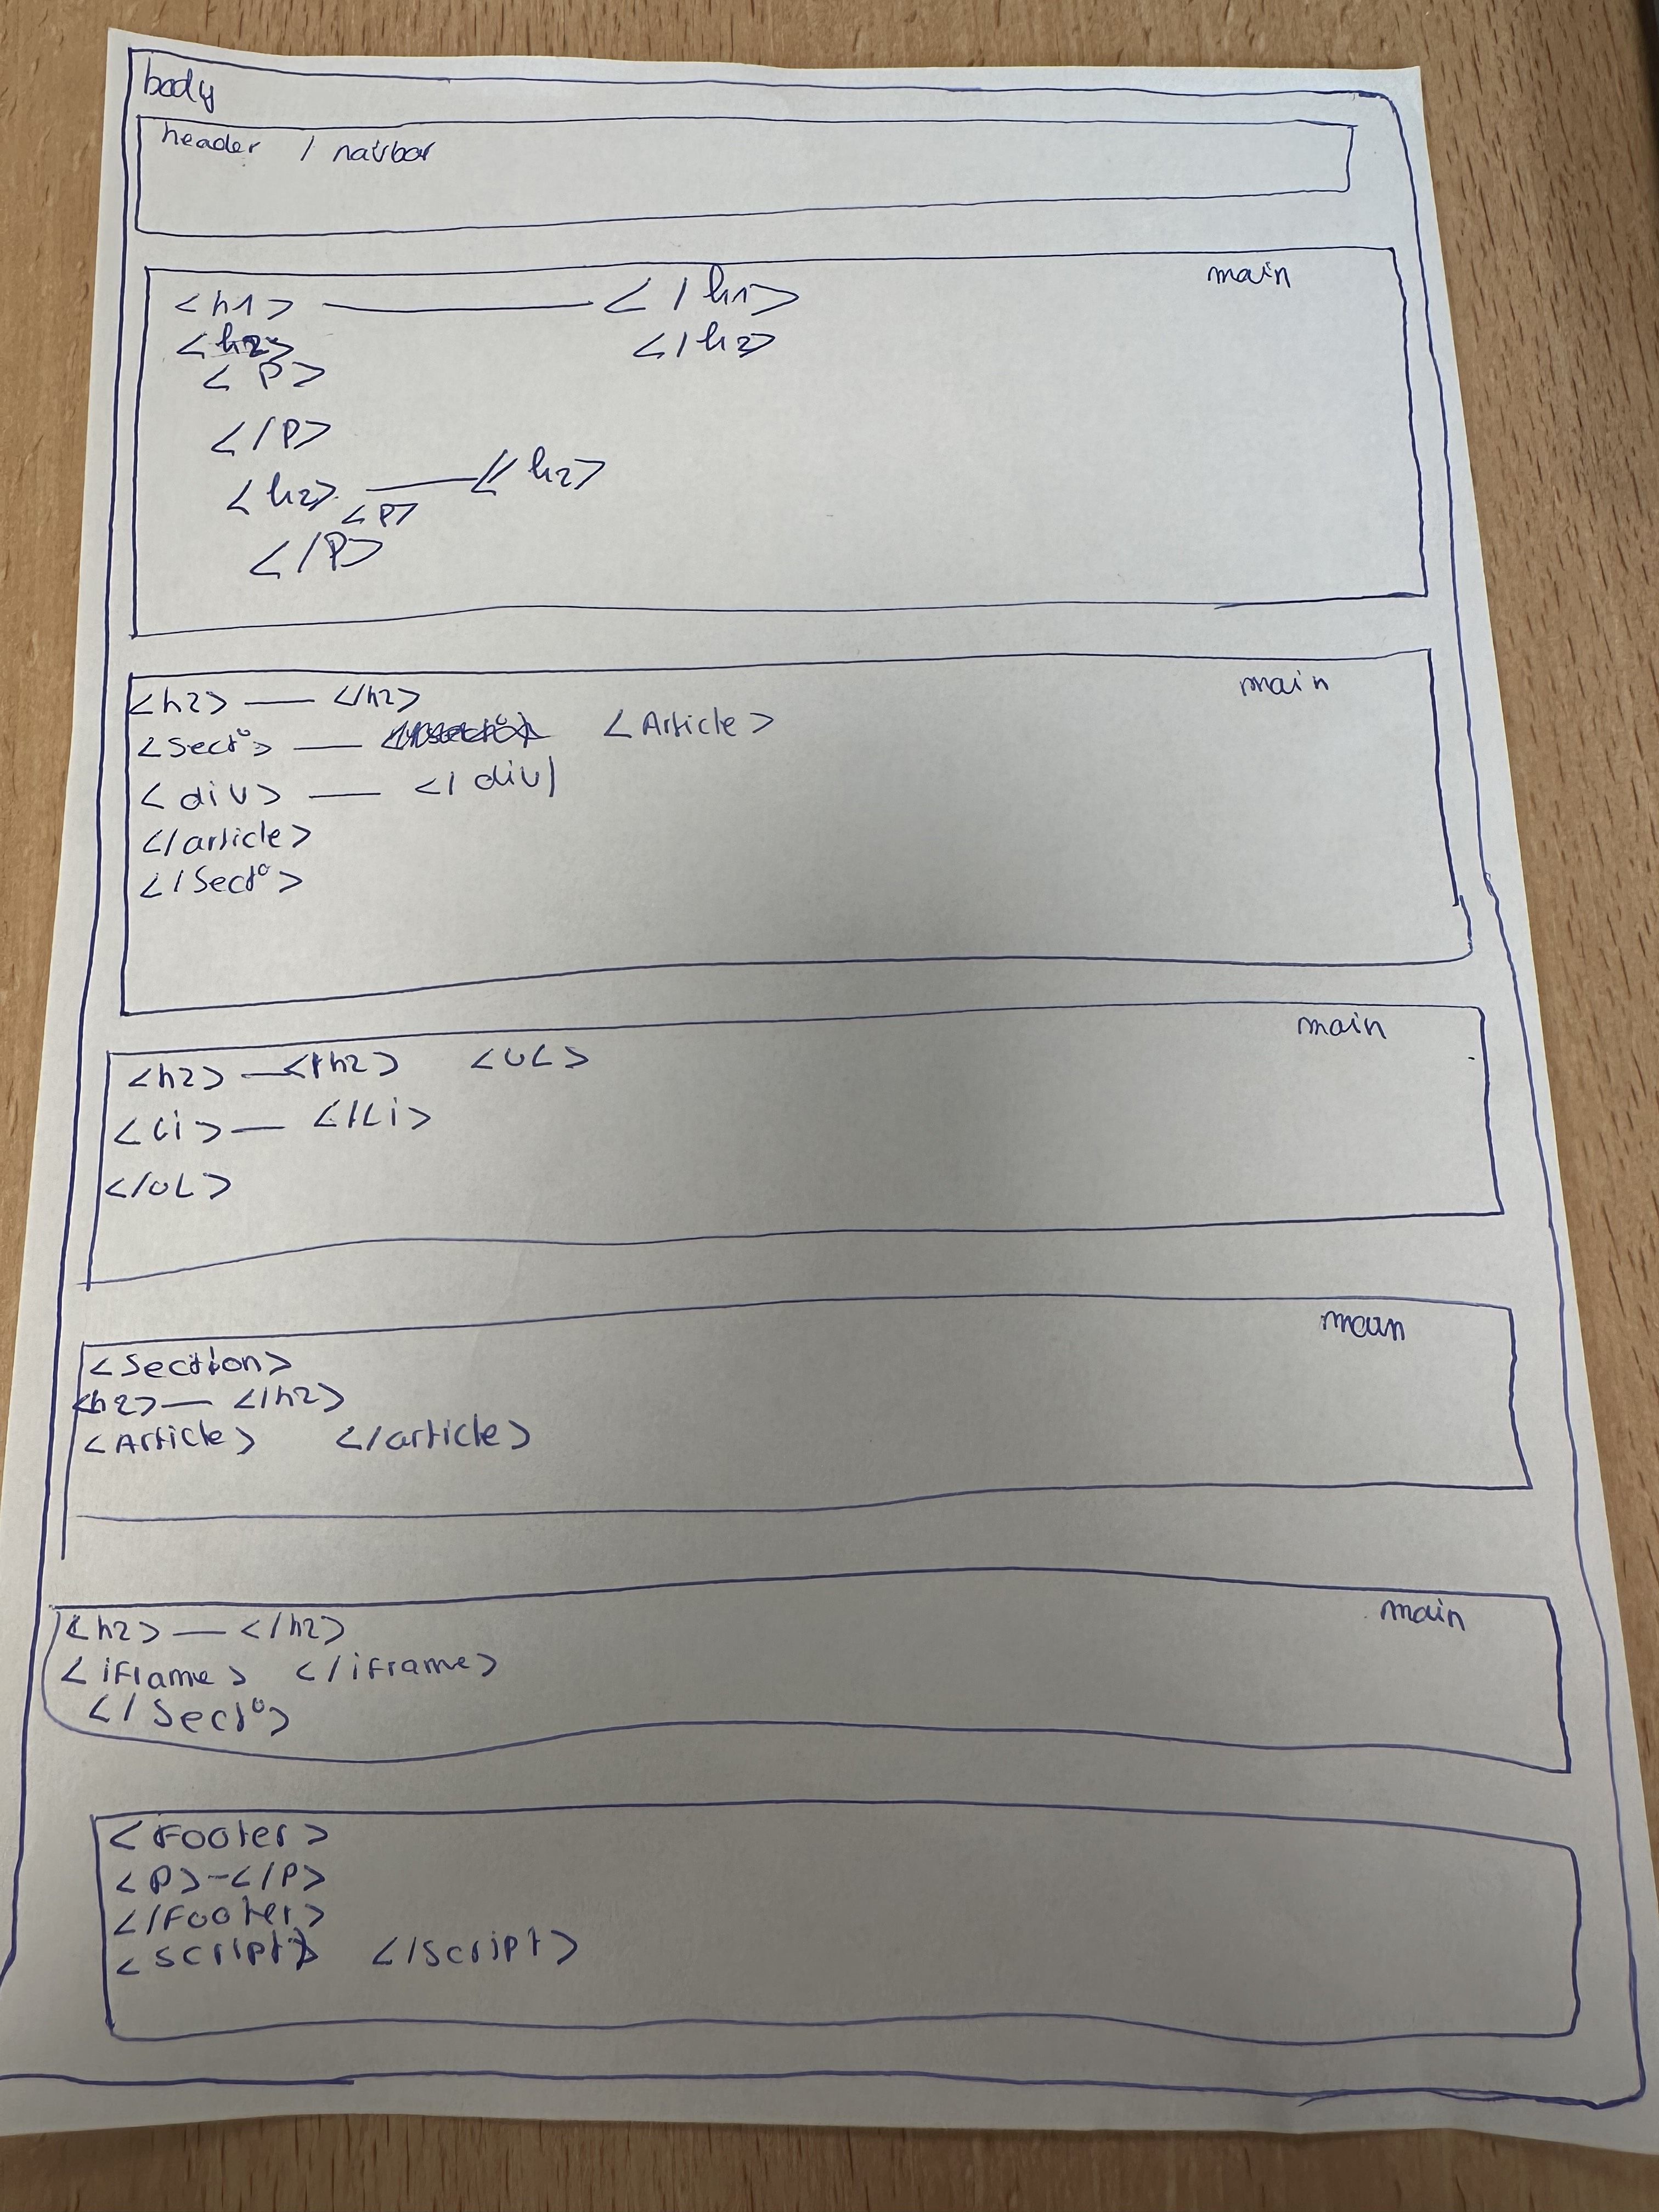 body
header / navbar
main
<h1> —— </h1>
<h2> </h2>
<P>
</P>
<h2> —— </h2>
<P>
</P>
main
<h2> — </h2>
<Sect°> — <Article>
<div> — </div|
</article>
</Sect°>
main
<h2> — </h2> <UL>
<Li> — </Li>
</UL>
main
<Section>
<h2> — </h2>
<Article> </article>
main
<h2> — </h2>
<iFrame> </iFrame>
</Sect°>
<Footer>
<P> - </P>
</Footer>
<script> </script>